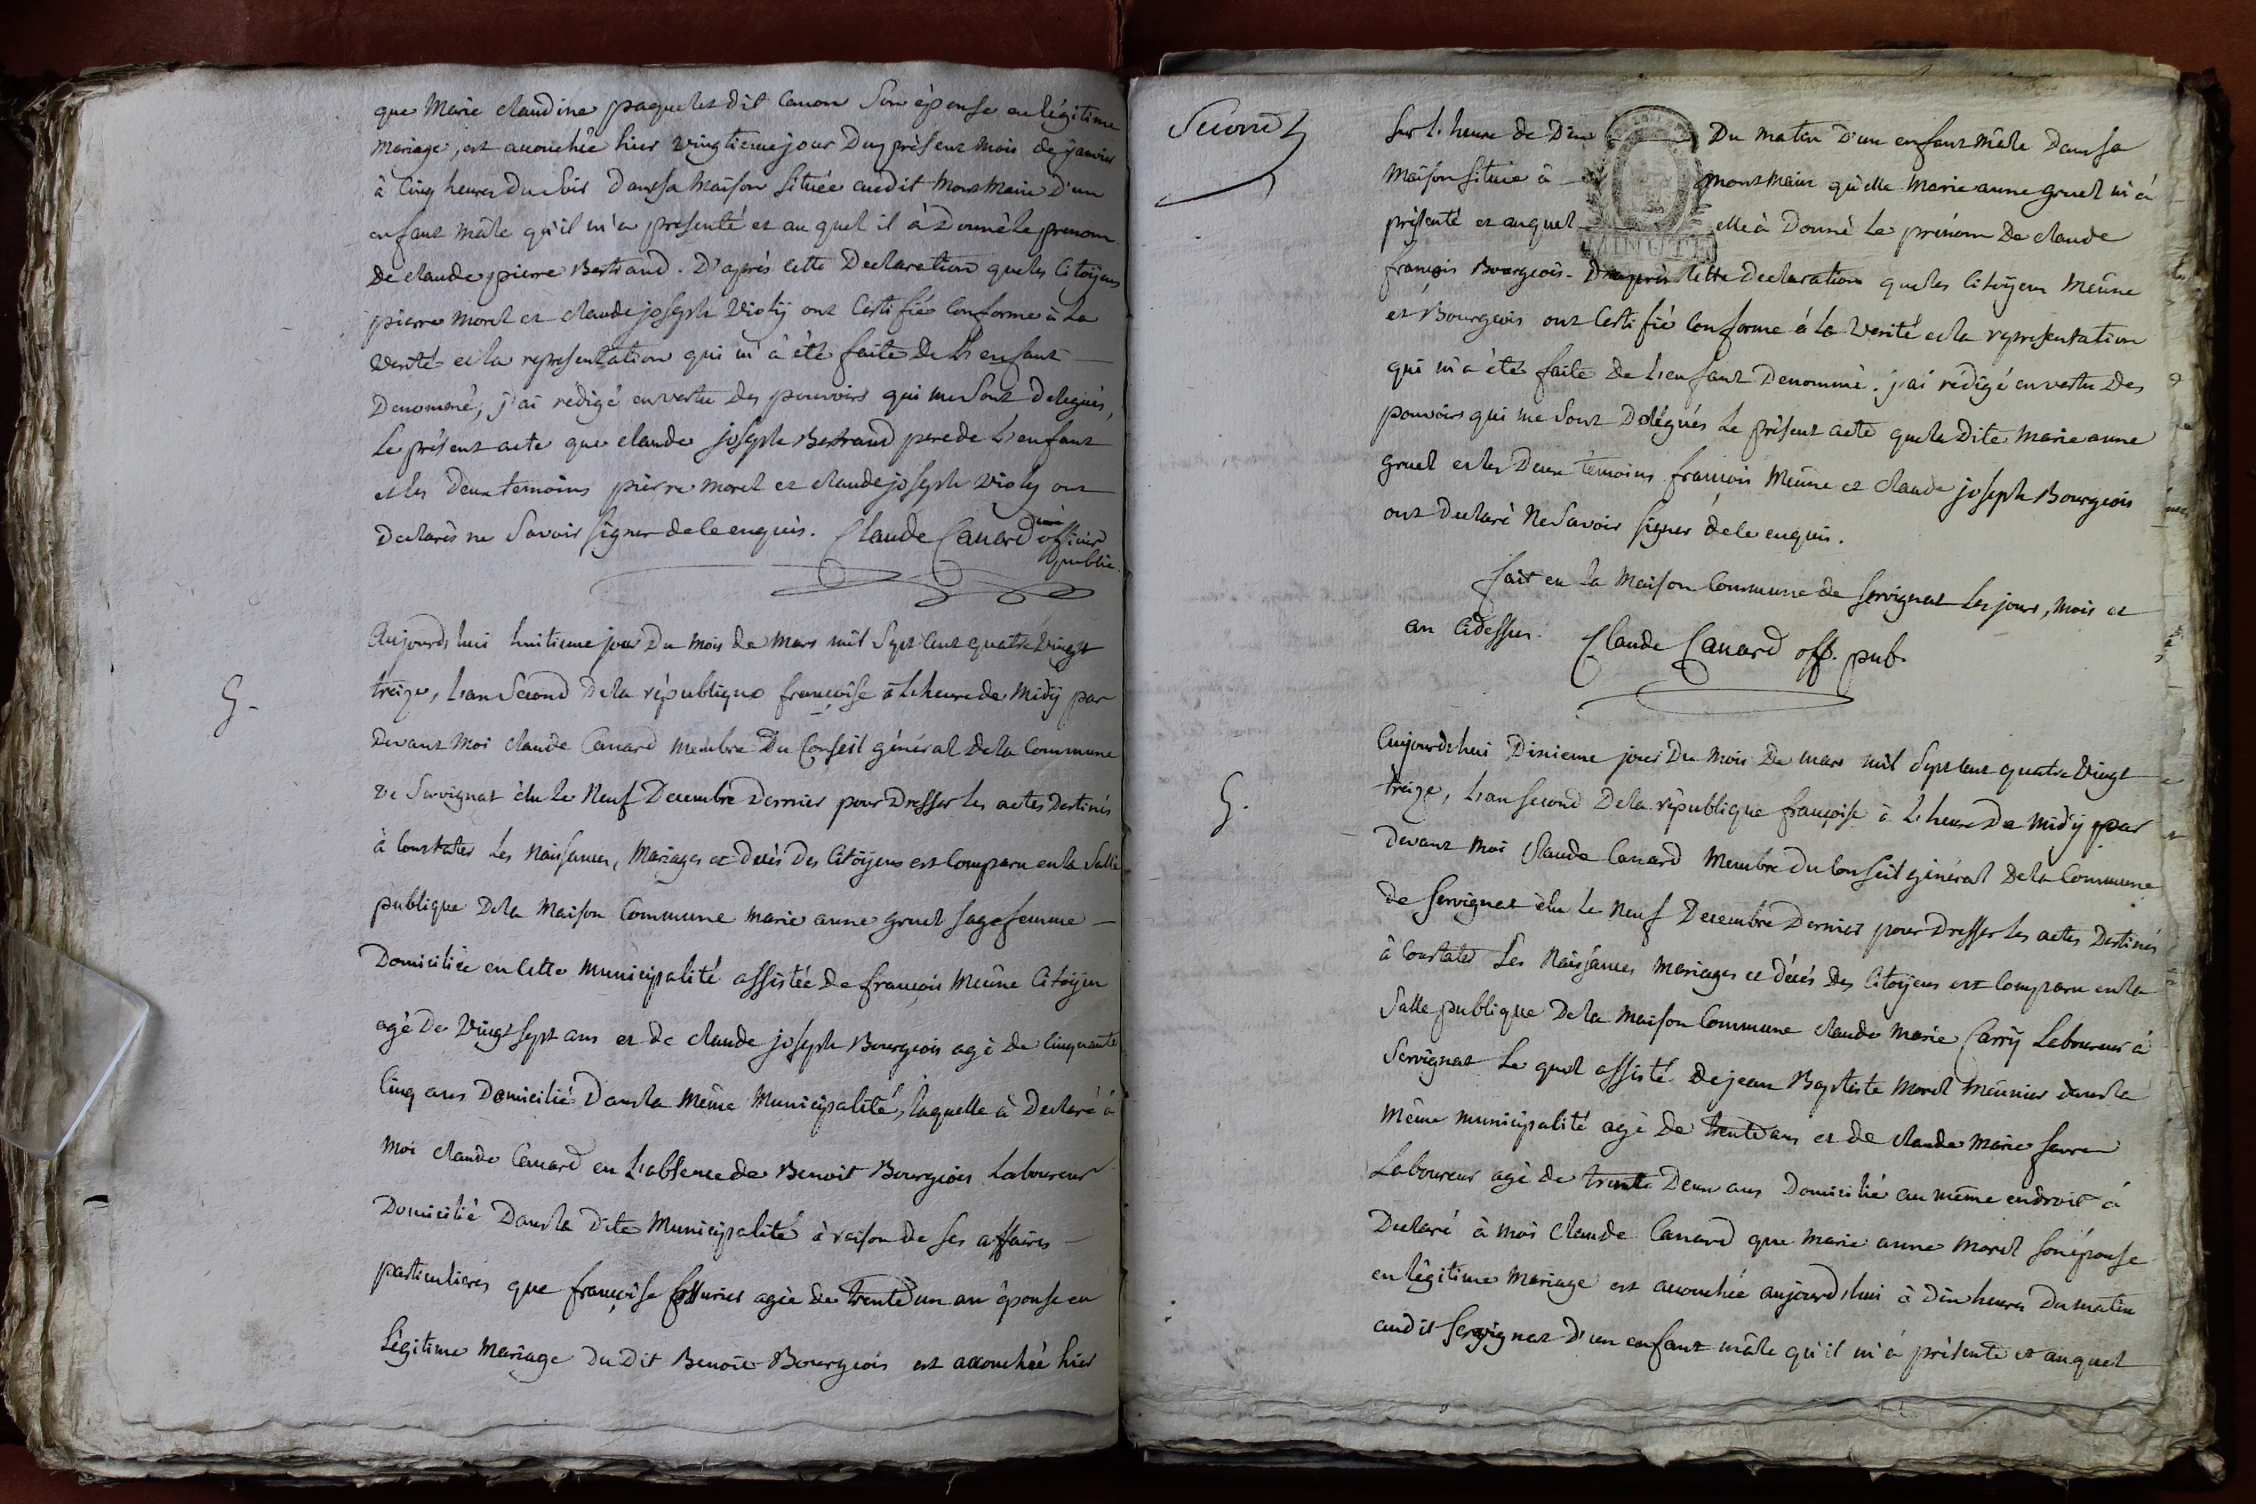 que Marie claudine paquelet dit Canon Son épouse en légitime
Mariage, est accouchée hier vingtieme jour Du présent mois de janvier
à Cinq heures Du Soir Dans sa Maison Située audit Montmain D'un
enfant Mâle qu'il m'a presenté et au quel il à Donné le prenom
De claude pierre Bertrand. D'après Cette Declaration que les Citoÿens
pierre morel et claude joseph Violÿ ont Certifié Conforme à La
verité et la representation qui m'à été faite De L'enfant
Denommé, j'ai rédigé en vertu Des pouvoirs qui me Sont Delegués,
Le présent acte que claude joseph Bertrand pere de L'enfant
et les Deux temoins pierre morel et claude joseph Violy ont
Declarés ne Savoir signer de ce enquis. Claude Canard officier
public.
Aujourd'hui huitieme jour Du Mois de Mars mil Sept Cent quatre Vingt
G.
treize, L'an Second De la république françoise à L'heure de Midÿ par
Devant Moi Claude Canard Membre Du Conseil général De la Commune
De Servignat élu Le Neuf Decembre Dernier pour Dresser les actes Destinés
à Constater Les Naissances, Mariages et Decès Des Citoÿens est Comparu en la Salle
publique De la Maison Commune marie anne gruel sage femme
Domiciliée en Cette Municipalité assistée de françois Meûne Citoÿen
agé De Vingt sept ans et de claude joseph Bourgeois agé de Cinquante
Cinq ans Domicilié Dans la Même Municipalité, laquelle à Declaré à
Moi claude Canard en L'absence de Benoit Bourgeois Laboureur
Domicilié Dans la Dite Municipalité à raison de ses affaires
particulieres que françoise agée de trente un an épouse en
Légitime Mariage Du Dit Benoit Bourgeois est accouchée hier
Second
Sur L'heure de Dix Du matin D'un enfant Mâle Dans sa
Maison Située à Montmain qu'elle Marie anne gruel m'à
présenté et auquel elle à Donné Le prénom De claude
MINUTE
françois Bourgeois. D'après Cette Declaration que les Citoÿens Meûne
et Bourgeois ont Certifié Conforme à la Verité et la representation
qui m'à été faite de L'enfant Denommé. j'ai rédigé en vertu Des
pouvoirs qui me Sont Délégués Le présent acte que la Dite Marie anne
gruel et les Deux temoins françois Meûne et claude joseph Bourgeois
ont Declaré Ne Savoir signer de ce enquis.
fait en la Maison Commune de Servignat Les jours, Mois et
an Cidessus. Claude Canard off. pub.
Aujourd'hui Dixieme jour Du Mois De mars mil Sept Cent quatre Vingt
G.
treize, L'an Second De la république françoise à L'heure De Midÿ par
Devant Moi Claude Canard Membre du Conseil général De la Commune
de Servignat élu Le Neuf Decembre Dernier pour Dresser les actes Destinés
à Constater Les Naissances Mariages et Décés Des Citoÿens est Comparu en la
Salle publique De la Maison Commune claude Marie Carrÿ Laboureur à
Servignat Le quel assisté de jean Baptiste Morel Meûnier dans la
même Municipalité agé de trente ans et de claude Marie
Laboureur agé de trente Deux ans Domicilié au même endroit à
Declaré à moi claude Canard que Marie anne Morel son épouse
en légitime Mariage est accouchée aujourd'hui à Dix heures Du matin
audit Servignat D'un enfant mâle qu'il m'à présenté et auquel